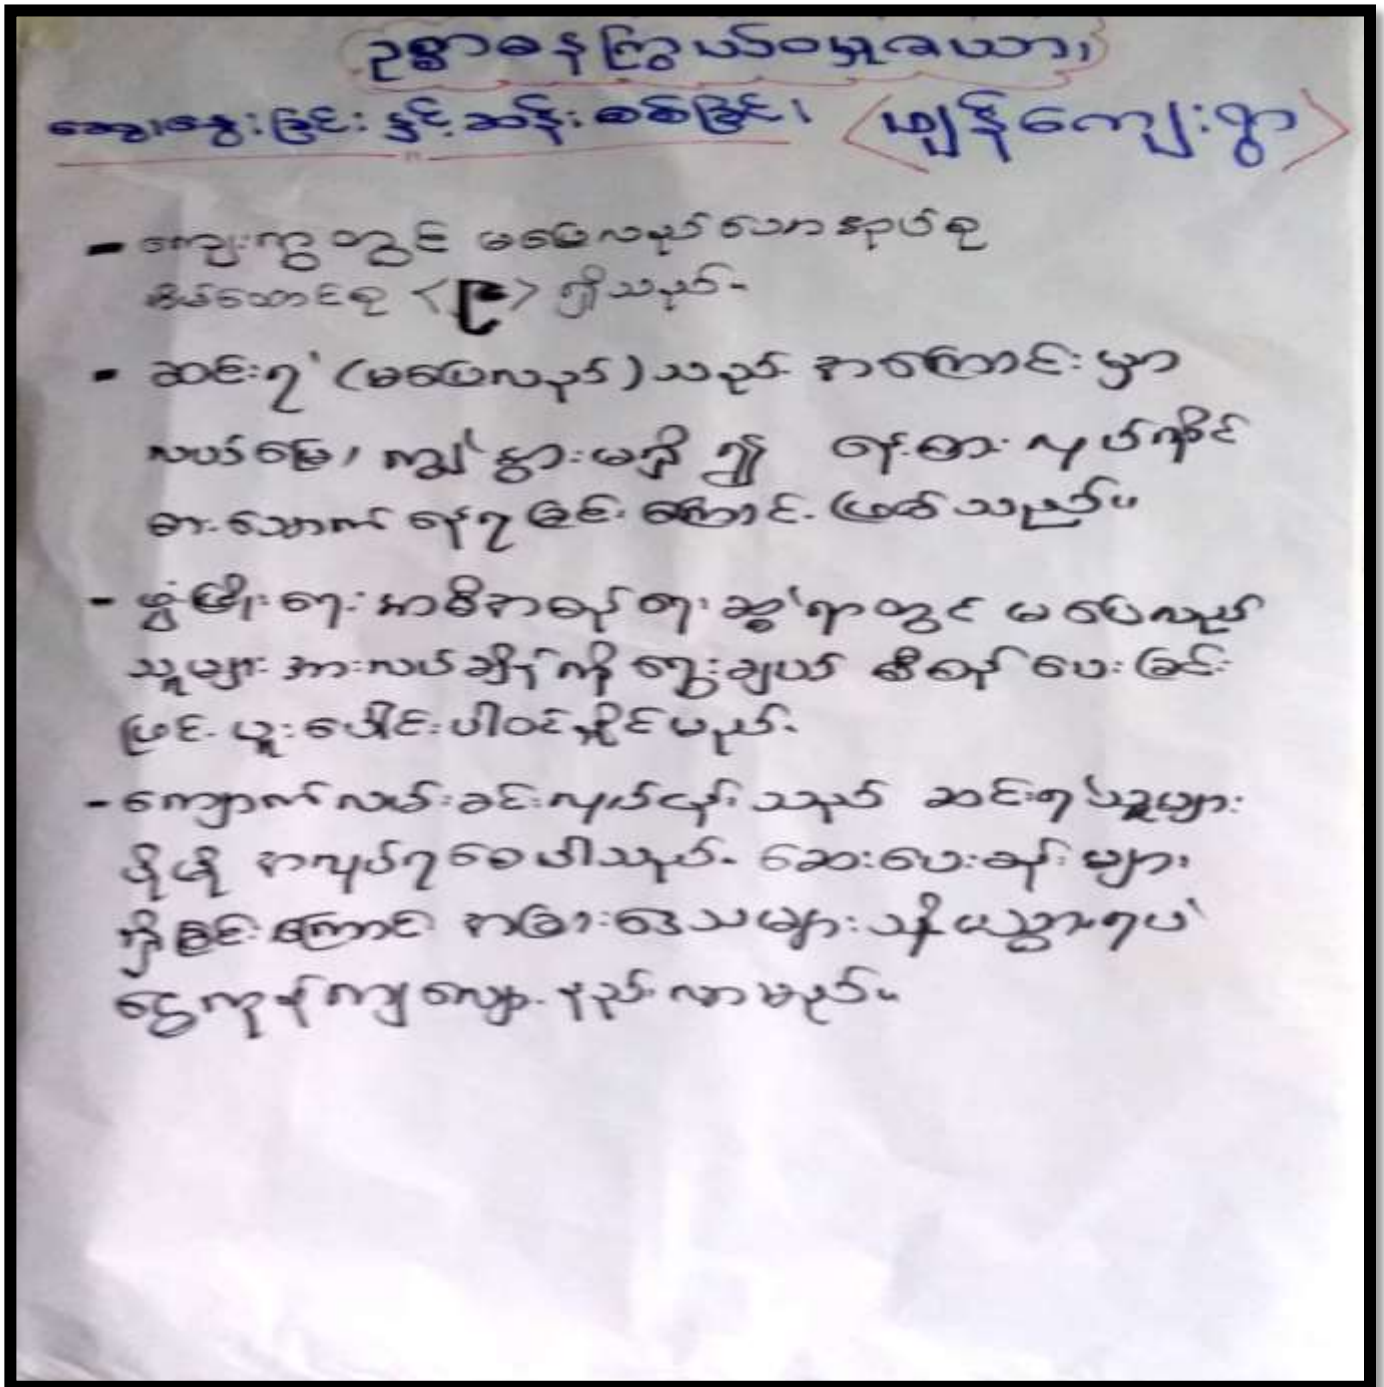 ဥစ္စာဓန ကြွယ်ဝမှု ဇယား၊
ဆွေးနွေးခြင်း နှင့် ဆန်းစစ်ခြင်း၊ <မျှန်ကျေးရွာ>
- ကျေးရွာတွင် မပြေလည်သော အုပ်စု
အိမ်ထောင်စု ရှိသည်-
- ဆင်းရဲ (မပြေလည်) သည့် အကြောင်းမှာ
လယ်မြေ၊ ကျွဲနွားမရှိ၍ နေ့စား လုပ်ကိုင်
စားသောက်နေရခြင်းကြောင့် ဖြစ်သည်။
- ဖွံ့ဖြိုးရေး အစီအစဉ် ရေးဆွဲရာတွင် မပြေလည်
သူများ အားလပ်ချိန်ကို ရွေးချယ် စီစဉ်ပေးခြင်း
ဖြင့် ပူးပေါင်းပါဝင်နိုင်မည်-
- ကျောက်လမ်းခင်းလုပ်ငန်းသည် ဆင်းရဲသူများ
ပိုမို အလုပ်ရစေပါသည်- ဆေးပေးခန်းများ
ရှိခြင်းကြောင့် အခြားဒေသများသို့ မသွားရပဲ
ငွေကုန်ကျ လျော့နည်းလာမည်။